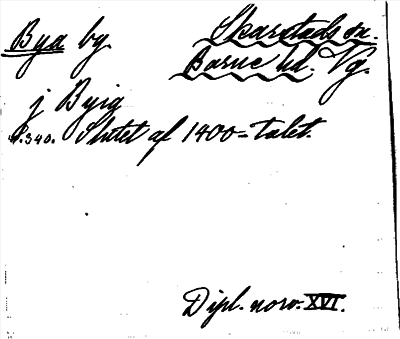 Bya by.
Skarstads sn.
Barne hd. Vg.
j Byig
s. 340. Slutet af 1400-talet.
Dipl. norv. XVI.